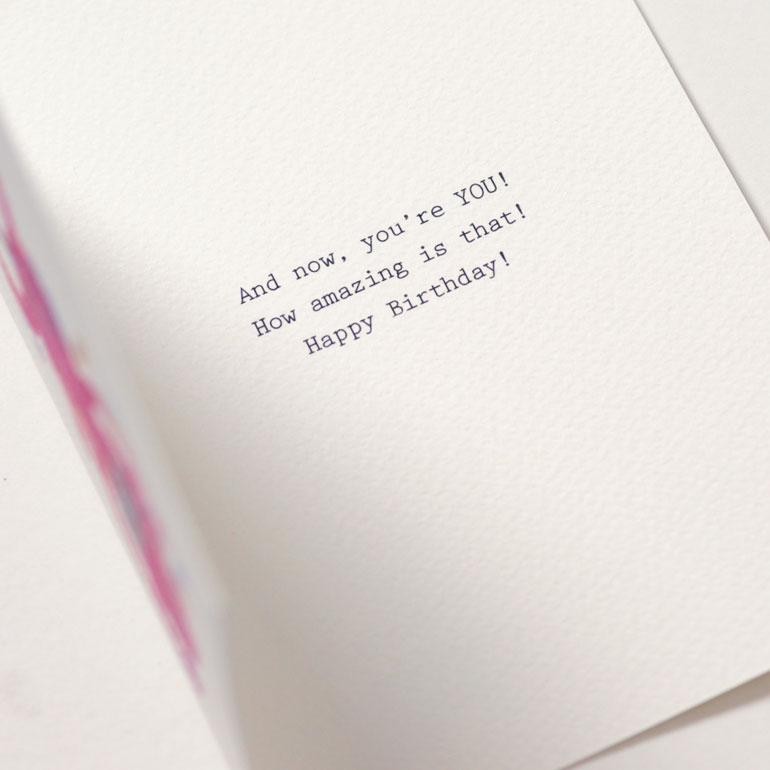 And now, you're YOU!
How amazing is that!
Happy Birthday!